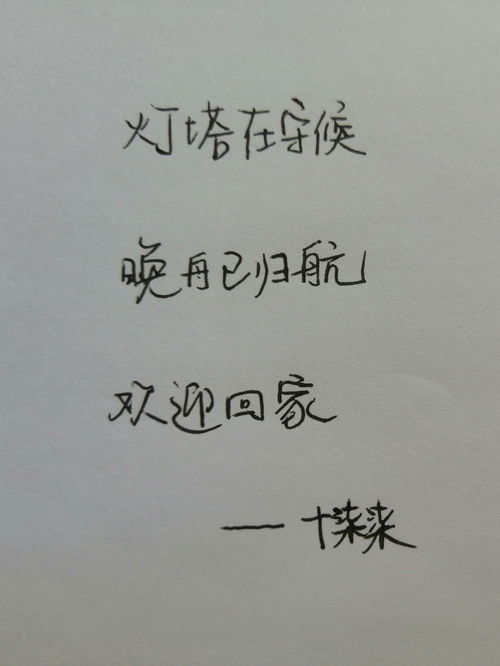 灯塔在守候
晚舟已归航
欢迎回家
——十柒柒